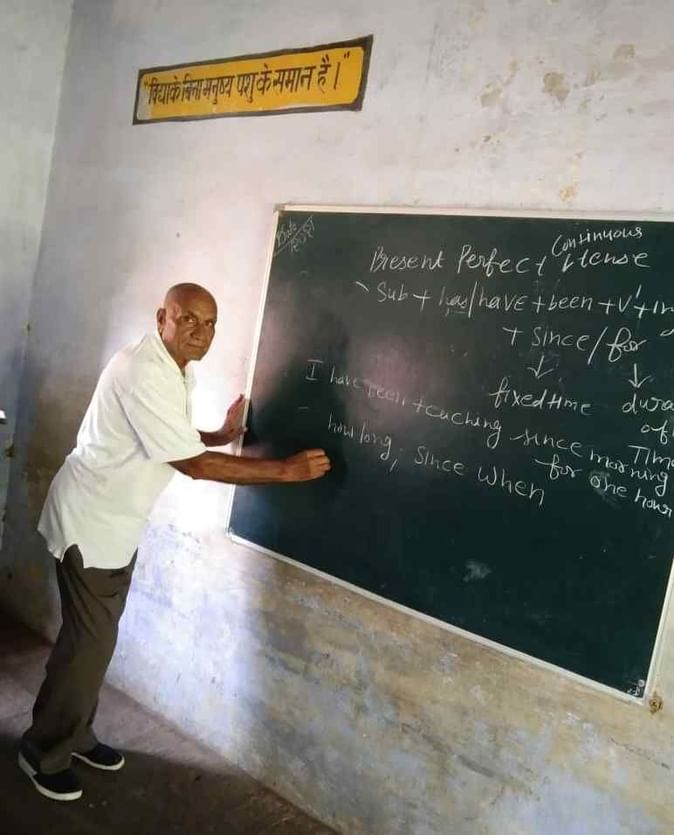 "विद्या के बिना मनुष्य पशु के समान है।"
Continuous
Present Perfect tense
Sub + has/have + been + V¹ + in
+ since/for
↓ ↓
fixed time dura
of
Time
I have been teaching since morning
for one hour
- how long, since when